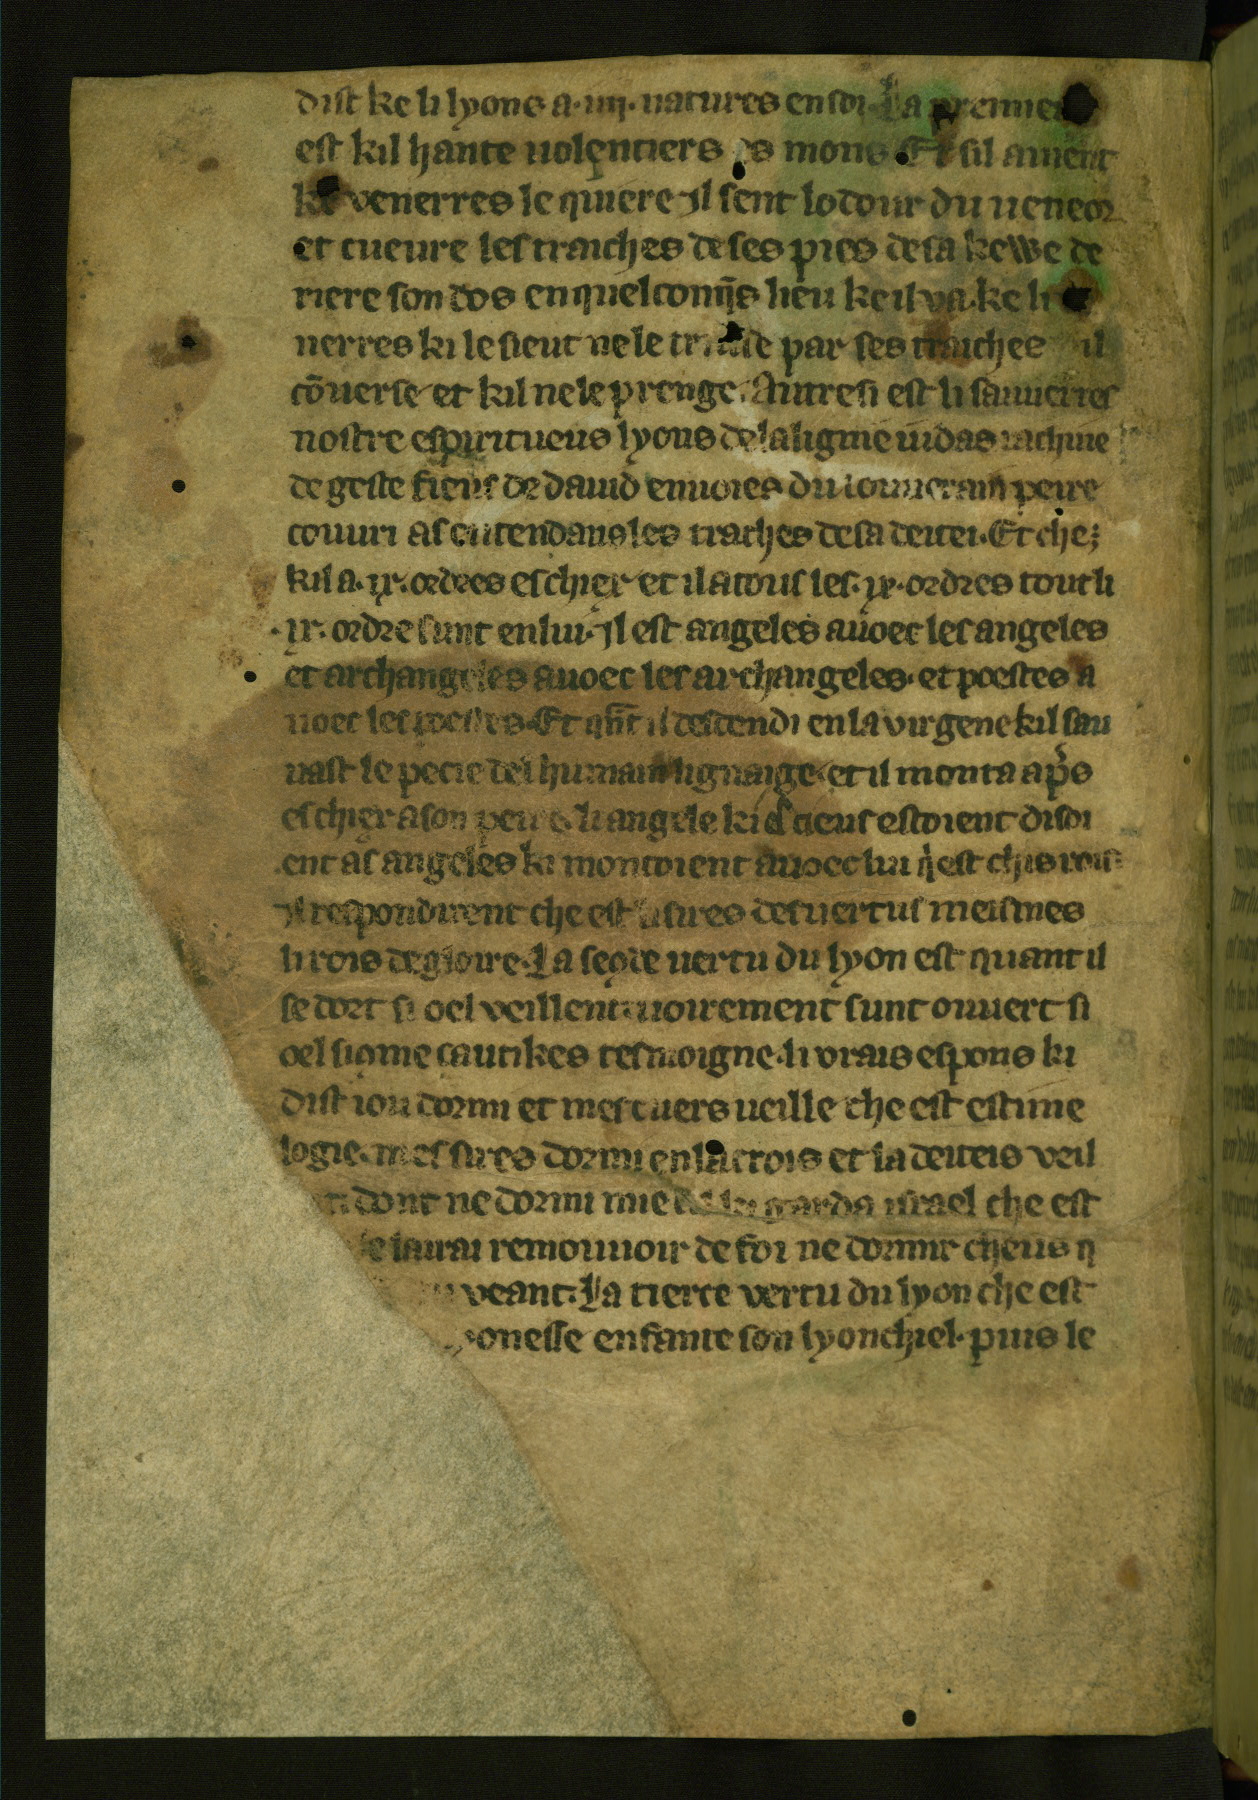 dist ke li lyons a .iiij. natures en soi. La premier
est kil hante uolentiers es mons Et sil auient
ke venerres le quiere Il sent lodour du ueneor
et cueure les traiches de ses pies de sa kewe de
riere son dos en quelconq̄s lieu ke il va. ke li
nerres ki le sieut ne le par ses traiches il
cōuerse et kil ne le prenge. Autresi est li sauuerres
nostre espiritueus lyons de la lignie iudas rachine
de gesse fieus de dauid enuoies du souuerain peire
couuri as entendans les traches de sa deitei. Et chez
kil a .ix. ordres es chiex et il a tous les .ix. ordres tout li
.ix. ordre sunt en lui. Il est angeles auoec les angeles
et archangeles auoec les archangeles. et poestes a
uoec les poestes. Et qn̄t il descendi en la virgene kil sau
uast le pecie del humain lignaige. et il monta ap̄s
es chiex a son peire. li angele ki es cieus estoient disoi
ent as angeles ki montoient auoec lui q̇ est chis rois
Il respondirent che est li sires des uertus meismes
li rois de gloire. La secōde uertu du lyon est quant il
se dort si oel veillent. uoirement sunt ouuert si
oel si cōme cantikes tesmoigne. li vrais espous ki
dist iou dormi et mes cuers ueille che est estime
logie. mes sires dormi en la crois et la deiteis veil
dont ne dormi mie cil ki garda israel che est
e laurai remouuoir de foi ne dormir cheus q
veant. La tierce vertu du lyon che est
onesse enfante son lyonchiel. puis le